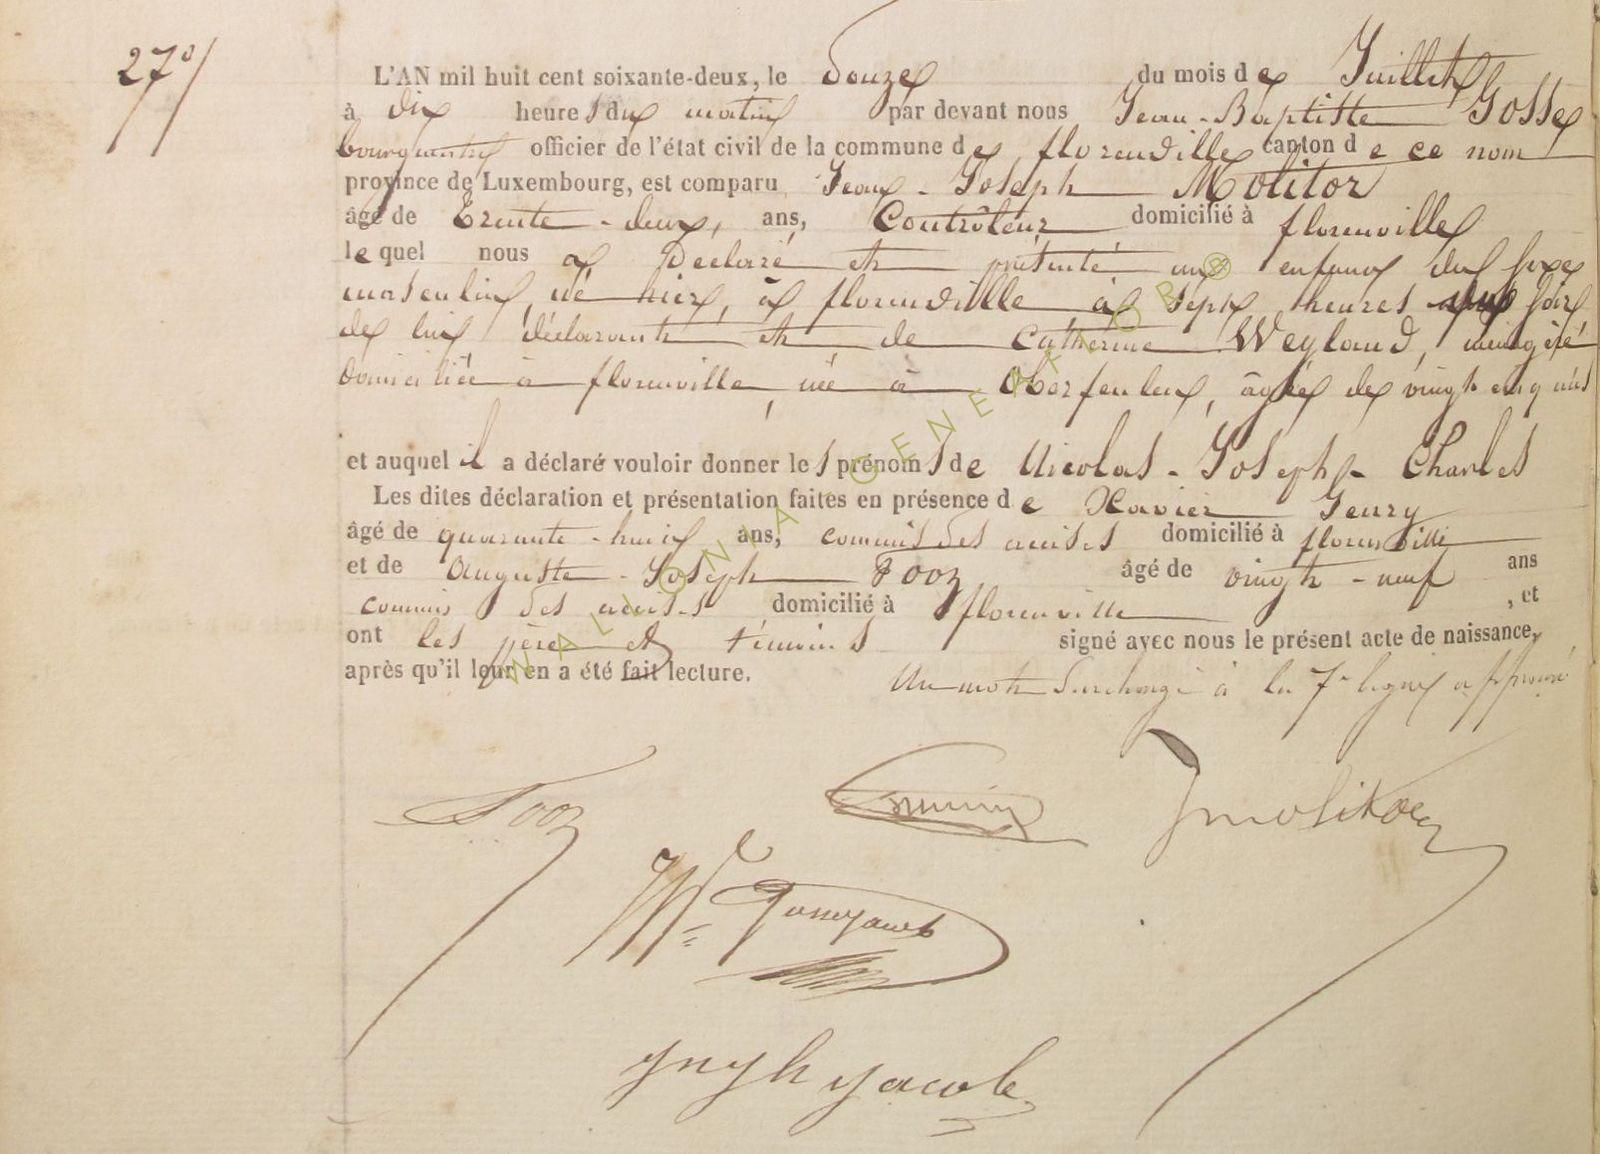 27°/
L'AN mil huit cent soixante-deux, le Douze du mois de Juillet
à dix heures du matin par devant nous Jean-Baptiste Gosse
bourguemtre officier de l'état civil de la commune de florenville canton de ce nom
province de Luxembourg, est comparu Jean-Joseph Molitor
âgé de Trente-deux, ans, Contrôleur domicilié à florenville
lequel nous a Déclaré et présenté un enfant du sexe
masculin, né hier, à florenville à sept heures du soir
de lui déclarant et de Catherine Weyland, ménagère
domiciliée à florenville, née à Oberfeulen, âgée de vingt cinq ans
et auquel il a déclaré vouloir donner les prénoms de Nicolas-Joseph-Charles
Les dites déclaration et présentation faites en présence de Xavier
âgé de quarante-huit ans, commis des accises domicilié à florenville
et de Auguste-Joseph Fooz âgé de vingt-neuf ans
commis des accises domicilié à florenville, et
ont les père et témoins signé avec nous le présent acte de naissance,
après qu'il leur en a été fait lecture. Un mot surchargé à la 7e ligne approuvé
Fooz Jmolitor
WALLONIA GENEALOGY ®